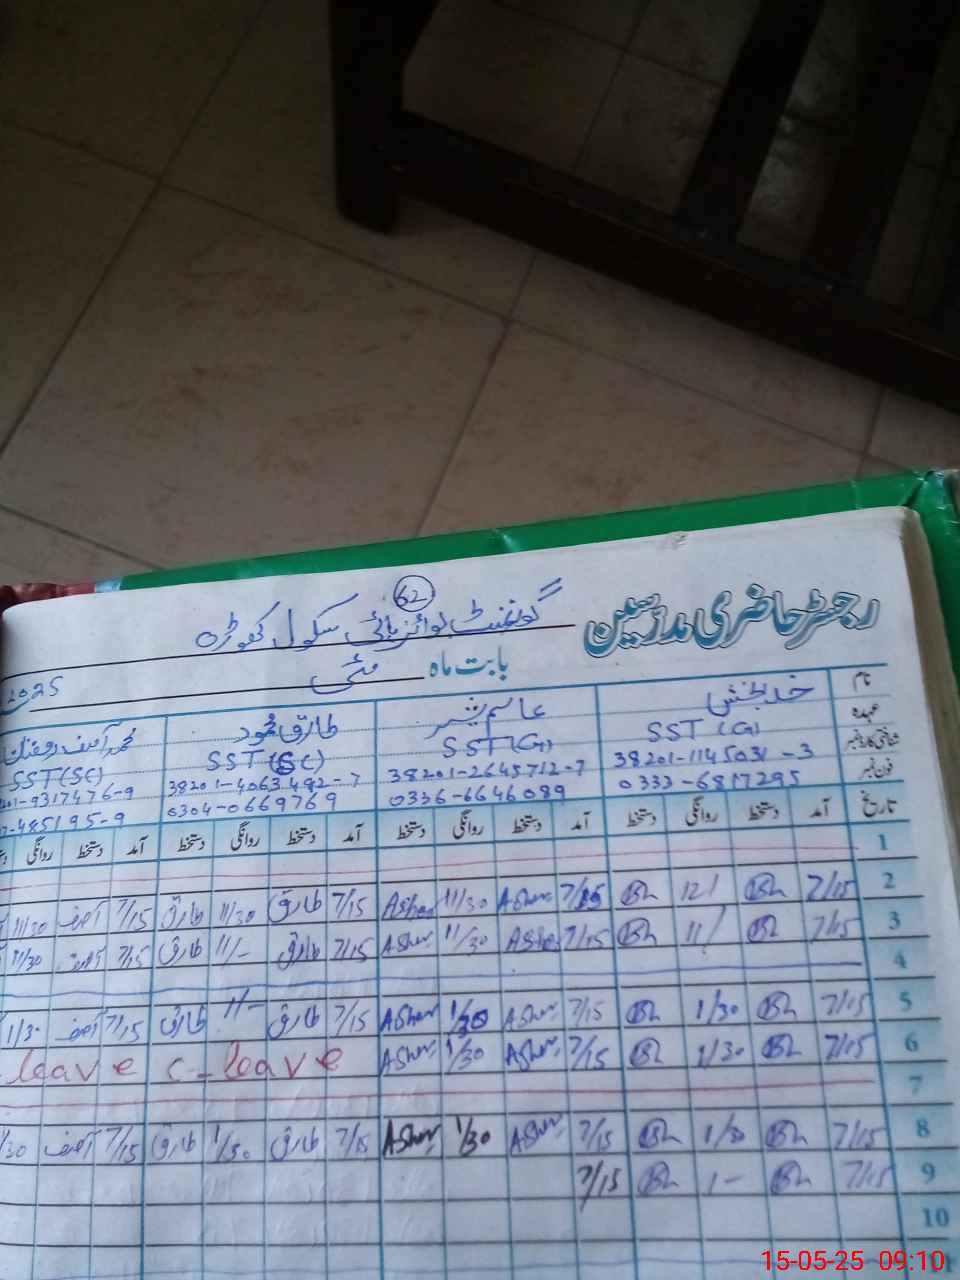 62
رجسٹر حاضری مدرسین گورنمنٹ بوائز ہائی سکول کھوڑہ
بابت ماہ مئی 2025
نام خدا بخش عاصم بشیر طارق محمود محمد آصف
عہدہ SST (G) SST (G) SST (SC) SST (SC)
شناختی کارڈ نمبر 38201-1145031-3 38201-2645712-7 38201-4063492-7 201-9317476-9
فون نمبر 0333-6817295 0336-6646089 0304-0669769 485195-9
تاریخ آمد دستخط روانگی دستخط آمد دستخط روانگی دستخط آمد دستخط روانگی دستخط آمد دستخط روانگی
1
2 7/15 12/ 7/15 Asher 11/30 Asher 7/15 طارق 11/30 طارق 7/15 آصف 11/30
3 7/15 11/ 7/15 Asher 11/30 Asher 7/15 طارق 11/- طارق 7/15 آصف 11/30
4
5 7/15 1/30 7/15 Asher 1/30 Asher 7/15 طارق 1/- طارق 7/15 آصف 1/30
6 7/15 1/30 7/15 Asher 1/30 Asher c-leave leave
7
8 7/15 1/30 7/15 Asher 1/30 Asher 7/15 طارق 1/30 طارق 7/15 آصف 1/30
9 7/15 1- 7/15
10
15-05-25 09:10